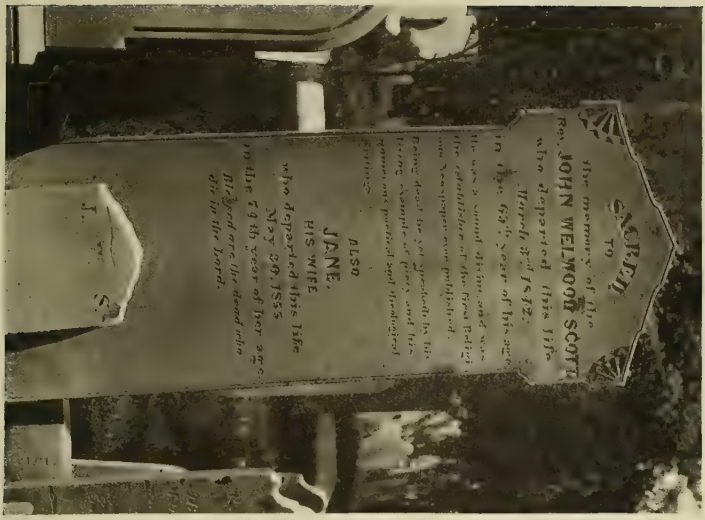 SACRED
TO
the memory of the
Rev. JOHN WELWOOD SCOTT
who departed this life
March 2nd 1842.
in the 63d year of his age
He was a sound divine and was
the establisher of the first Religi
ous Newspaper ever published.
Being dead he yet speaketh by his
living example of piety and his
numerous poetical and theological
writings
ALSO
JANE,
HIS WIFE
who departed this life
Nov. 30. 1855
in the 79th year of her age
Blessed are the dead who
die in the Lord.
J. S.